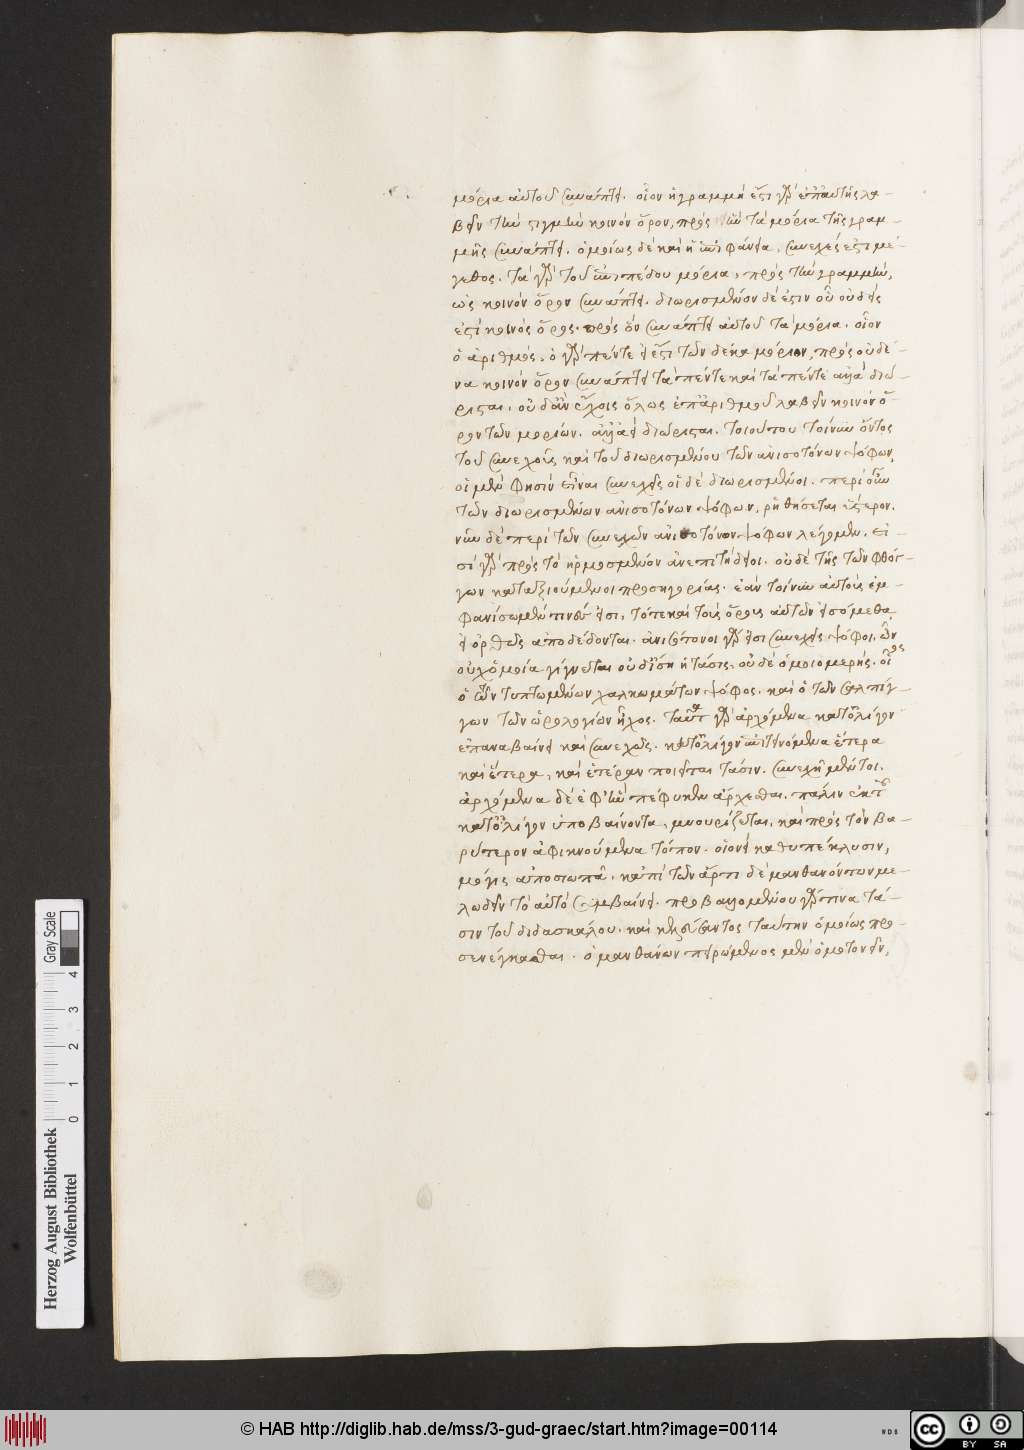 μόρια αὐτοῦ συνάπτει. οἷον ἡ γραμμή ἔστι γὰρ ἐπ' αὐτῆς λα-
βεῖν τὴν στιγμὴν κοινὸν ὅρον, πρὸς ἣν τὰ μόρια τῆς γραμ-
μῆς συνάπτει. ὁμοίως δὲ καὶ ἡ ἐπιφάνεια. συνεχές ἐστι μέ-
γεθος. τὰ γὰρ τοῦ ἐπιπέδου μόρια, πρὸς τὴν γραμμὴν,
ὡς κοινὸν ὅρον συνάπτει. διωρισμένον δέ ἐστιν οὗ οὐδείς
ἐστὶ κοινὸς ὅρος. πρὸς ὃν συνάπτει αὐτοῦ τὰ μόρια. οἷον
ὁ ἀριθμός. ὁ γὰρ πέντε εἰ ἔστι τῶν δέκα μόριον, πρὸς οὐδέ-
να κοινὸν ὅρον συνάπτει τὰ πέντε καὶ τὰ πέντε ἀλλὰ διώ-
ρισται. οὐδ' ἂν ἔχοις ὅλως ἐπ' ἀριθμοῦ λαβεῖν κοινὸν ὅ-
ρον τῶν μορίων. ἀλλ' ἀεὶ διώρισται. τοιούτου τοίνυν ὄντος
τοῦ συνεχοῦς καὶ τοῦ διωρισμένου τῶν ἀνισοτόνων ψόφων,
οἱ μὲν φησὶν εἶναι συνεχεῖς οἱ δὲ διωρισμένοι. περὶ οὖν
τῶν διωρισμένων ἀνισοτόνων ψόφων, ῥηθήσεται ὕστερον.
νῦν δὲ περὶ τῶν συνεχῶν ἀνισοτόνων ψόφων λέγομεν. εἰ-
σὶ γὰρ πρὸς τὸ ἡρμοσμένον ἀνεπιτήδειοι. οὐδὲ τῆς τῶν φθόγ-
γων καταξιούμενοι προσηγορίας. ἐὰν τοίνυν αὐτοὺς ἐμ-
φανίσωμεν τίνες εἰσι, τότε καὶ τοὺς ὅρους αὐτῶν εἰσόμεθα
εἰ ὀρθῶς ἀποδέδονται. ἀνισότονοι γὰρ εἰσι συνεχεῖς ψόφοι, ὧν
οὐχ ὁμοία γίγνεται οὐδ' ἴση ἡ τάσις, οὐδὲ ὁμοιομερής. οἷος
ὁ τῶν τυπτωμένων χαλκωμάτων ψόφος. καὶ ὁ τῶν σαλπίγ-
γων τῶν ὡρολογίων ἦχος. ταῦτα γὰρ ἀρχόμενα κατ' ὀλίγον
ἐπαναβαίνει καὶ συνεχῶς. κατ' ὀλίγον ἐπιτεινόμενα ἕτερα
καὶ ἕτερα, καὶ ἑτέραν ποιεῖται τάσιν. συνεχῆ μέν τοι.
ἀρχόμενα δὲ ἐφ' ἣν πέφυκεν ἄρχεσθαι. πάλιν ἐκ τοῦ
κατ' ὀλίγον ὑποβαίνοντα, μυουρίζεται, καὶ πρὸς τὸν βα-
ρύτερον ἀφικνούμενα τόπον. οἱονεὶ καθυπέκλυσιν,
μόγις ἀποσιωπᾶ. κἀπὶ τῶν ἄρτι δὲ μανθανόντων με-
λωδεῖν τὸ αὐτὸ συμβαίνει. προβαλλομένου γὰρ τινα τά-
σιν τοῦ διδασκάλου. καὶ κελεύσαντος ταύτην ὁμοίως προ-
σενέγκασθαι. ὁ μανθάνων πειρώμενος μὲν ὁμοτονεῖν,
Gray Scale
0 1 2 3 4
Herzog August Bibliothek
Wolfenbüttel
© HAB http://diglib.hab.de/mss/3-gud-graec/start.htm?image=00114
WDB
cc BY SA